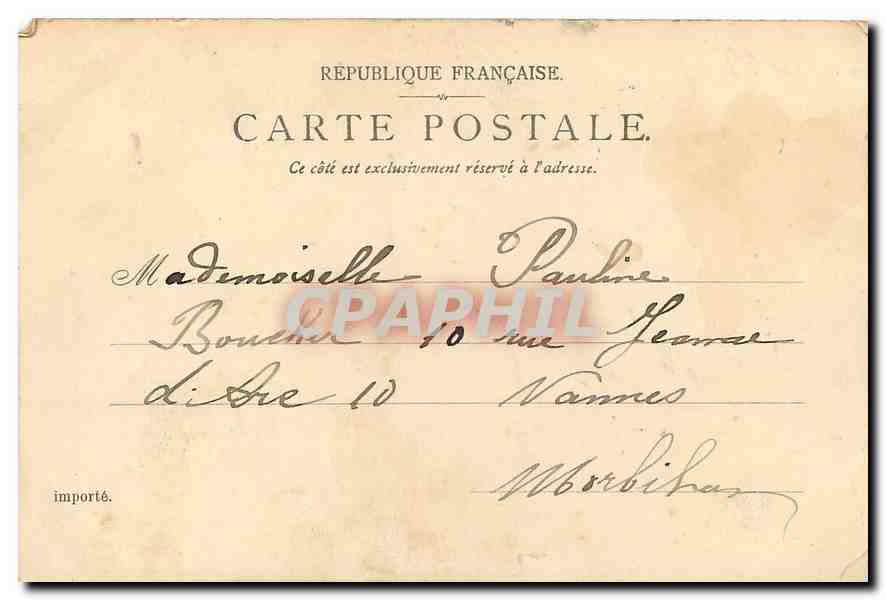 REPUBLIQUE FRANÇAISE.
CARTE POSTALE.
Ce côté est exclusivement réservé à l'adresse.
Mademoiselle Pauline
CPAPHIL
Boucher 10 rue Jeanne
d'Arc 10 Vannes
Morbihan
importé.